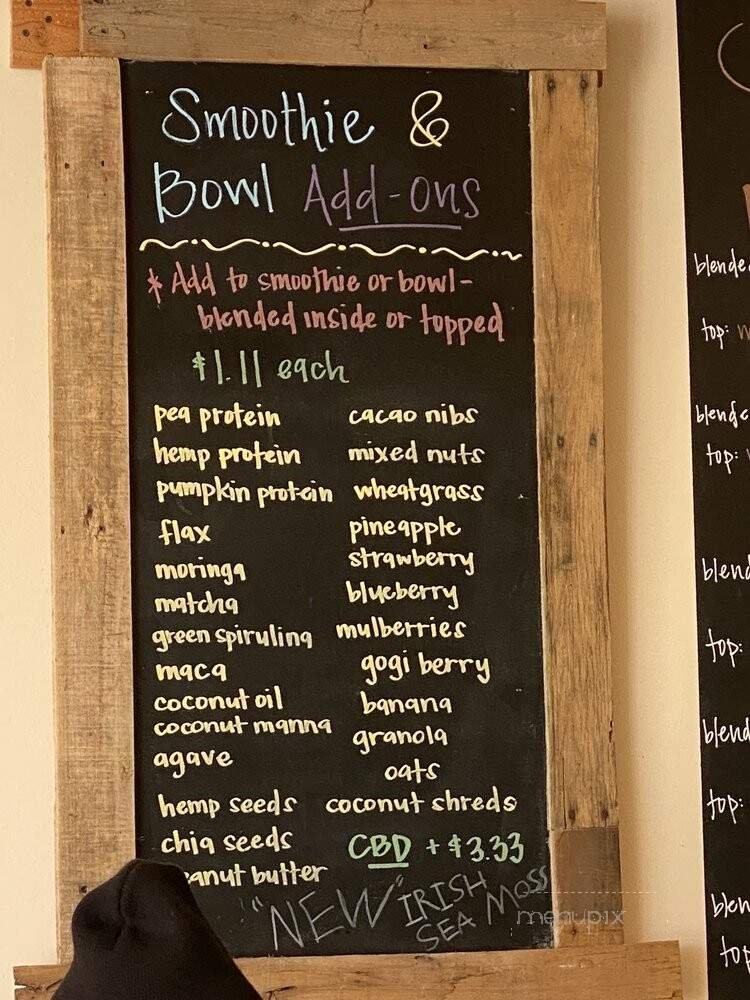 Smoothie &
Bowl Add-ons
* Add to smoothie or bowl-
blended inside or topped
$1.11 each
pea protein
hemp protein
pumpkin protein
flax
moringa
matcha
green spirulina
maca
coconut oil
coconut manna
agave
hemp seeds
chia seeds
butter
cacao nibs
mixed nuts
wheatgrass
pineapple
strawberry
blueberry
mulberries
gogi berry
banana
granola
oats
coconut shreds
CBD + $3.33
"NEW" IRISH
SEA MOSS
menupix
top:
top:
top:
top: